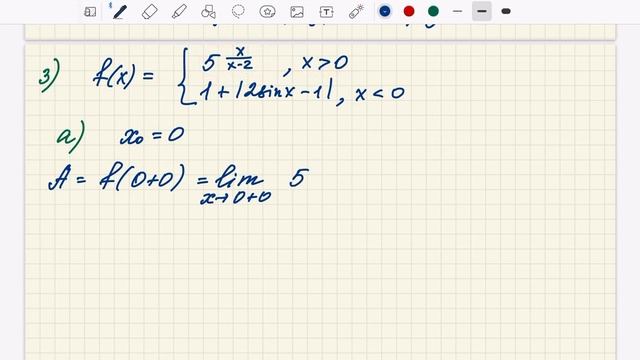 3) f(x) = { 5^(x/(x-2)), x > 0
1 + |2sinx - 1|, x < 0
a) x₀ = 0
A = f(0+0) = lim 5
x→0+0